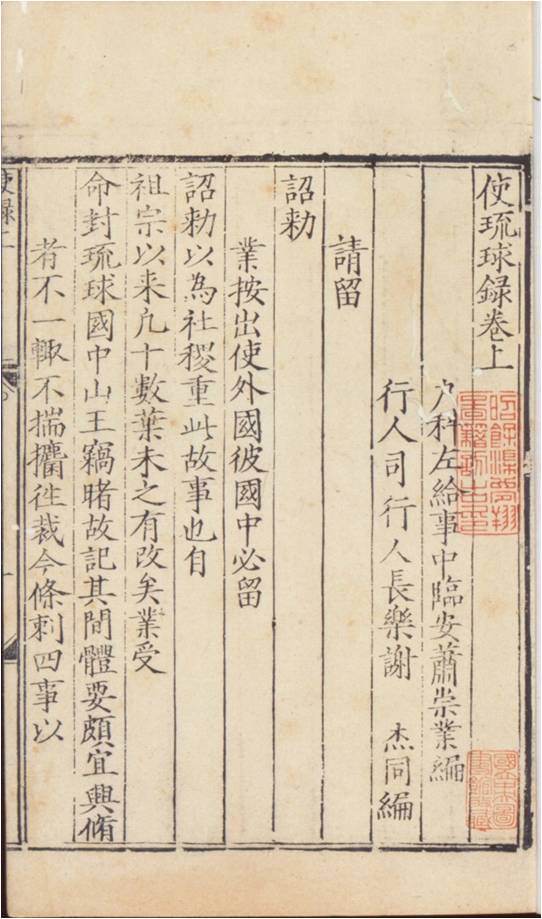 使琉球録卷上
戶科左給事中臨安蕭崇業編
行人司行人長樂謝 杰同編
請留
詔勅
業按出使外國彼國中必留
詔勅以為社稷重此故事也自
祖宗以来凡十數葉未之有改矣業受
命封琉球國中山王竊睹故記其間體要頗宜興脩
者不一輙不揣攟徃裁今條刺四事以